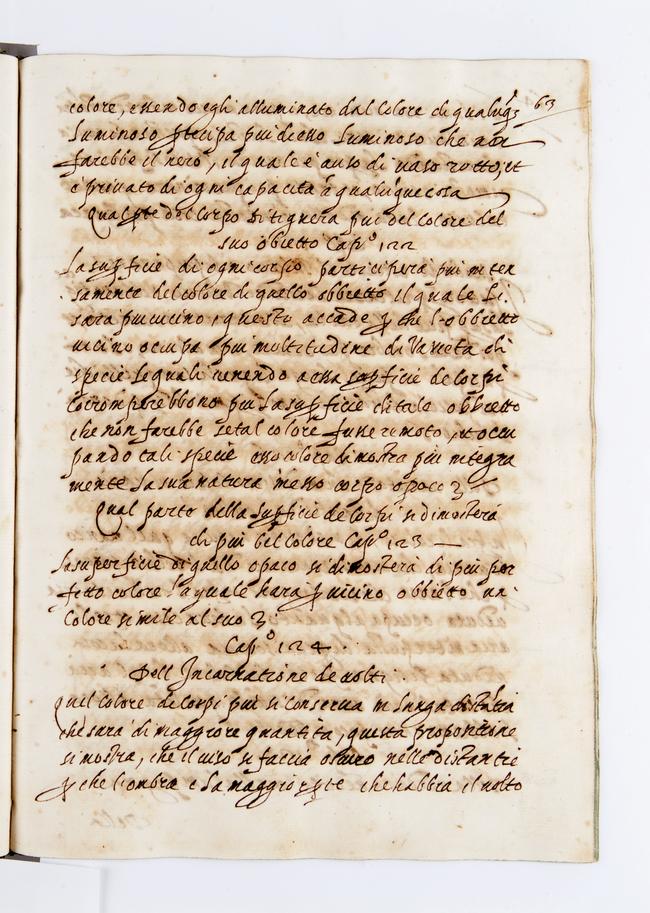 63
colore, essendo egli alluminato dal colore di qualunq3
luminoso ptecipa piu di esso luminoso che non
farebbe il nero, il quale è auso di uaso rotto, il
è priuato di ogni capacita a qualunque cosa
Qual pte del corpo si tignera piu del colore del
suo obietto Cap.º 122
La supficie di ogni corpo participera piu inten
samente del colore di quello obbietto il quale li
sara piu uicino, questo accade p che l'obbietto
uicino ocupa piu moltitudine di Varieta di
specie le quali uenendo a essa supficie de corpi
corromperebbono piu la supficie di tale obbietto
che non farebbe se tal colore fusse rimoto, et occu
pando tali specie esso colore dimostra piu integra
mente la sua natura in esso corpo opaco
Qual parte della supficie de corpi si dimostera
di piu bel colore Cap.º 123
La superficie di quello opaco si dimostera di piu per
fetto colore la quale hara p uicino obbietto un
colore simile al suo
Cap.º 124
Dell Incarnatione de uolti
Quel colore de corpi piu si conserua in lunga distantia
che sara di maggiore quantita, questa propositione
si mostra, che il uiso si faccia oscuro nelle distantie
p che l'ombra è la maggior pte che habbia il uolto